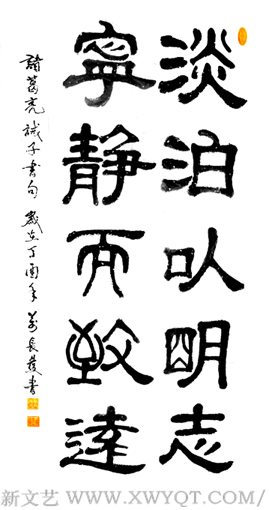 淡泊以明志
寧静而致遠
諸葛亮誡子書句 歲在丁酉年 長發書
新文艺 WWW.XWYQT.COM/